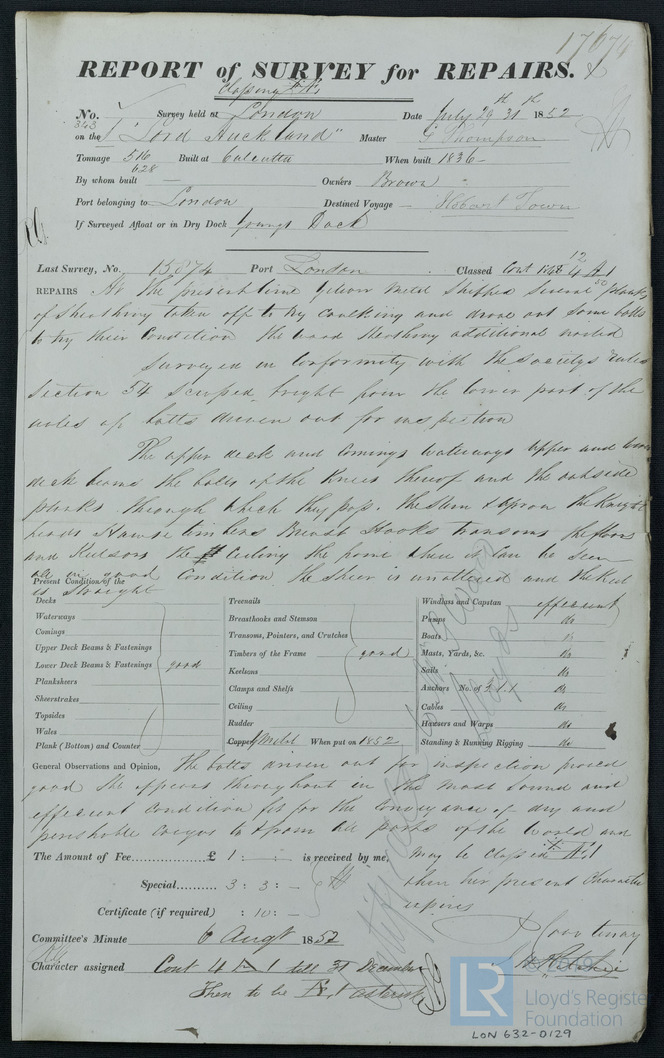 17674
REPORT of SURVEY for REPAIRS.
Classing
No. 343 Survey held at London Date July 29th 31th 1852
on the "Lord Auckland" Master G Thompson
Tonnage 516 628 Built at Calcutta When built 1836 –
By whom built — Owners Brown
Port belonging to London Destined Voyage – Hobart Town
If Surveyed Afloat or in Dry Dock Youngs Dock
Last Survey, No. 15874 Port London Classed Cont 1848 12
REPAIRS At the present time Yellow Metal Shipped Several planks
of Sheathing taken off to try caulking and drove out some bolts
to try their Condition the wood Sheathing additional nailed
Surveyed in Conformity with the Societys rules
Section 54 scraped bright from the lower part of the
wales up bolts driven out for inspection
The upper deck and Comings waterways upper and lower
deck beams the bolts of the Knees thereof and the outside
planks through which they pass. the Stem & apron the Knight
heads Hawse timbers Breast Hooks transoms the floors
and Keelsons the Ceiling the frame where it can be seen
all in good Condition the Sheer is unaltered and the Keel
is straight
Present Condition of the
Decks
Waterways
Comings
Upper Deck Beams & Fastenings
Lower Deck Beams & Fastenings good
Planksheers
Sheerstrakes
Topsides
Wales
Plank (Bottom) and Counter
Treenails
Breasthooks and Stemson
Transoms, Pointers, and Crutches
Timbers of the Frame good
Keelsons
Clamps and Shelfs
Ceiling
Rudder
Copper Y Metal When put on 1852
Windlass and Capstan efficient
Pumps do
Boats do
Masts, Yards, &c. do
Sails do
Anchors No. of 3.1.1 do
Cables do
Hawsers and Warps do
Standing & Running Rigging do
General Observations and Opinion, The bolts driven out for inspection proved
good She appears throughout in the most Sound and
efficient Condition fit for the Conveyance of dry and
perishable Cargos to & from all parts of the World and
The Amount of Fee £ 1 : – : – is received by me, may be Classed
Special 3 : 3 : – then her present Character
Certificate (if required) : 10 : – expires
Committee's Minute 6 Augt 1852
Character assigned Cont 4 A 1 till 31 December
Then to be asterisk
LR
Lloyd's Register
Foundation
LON 632-0129